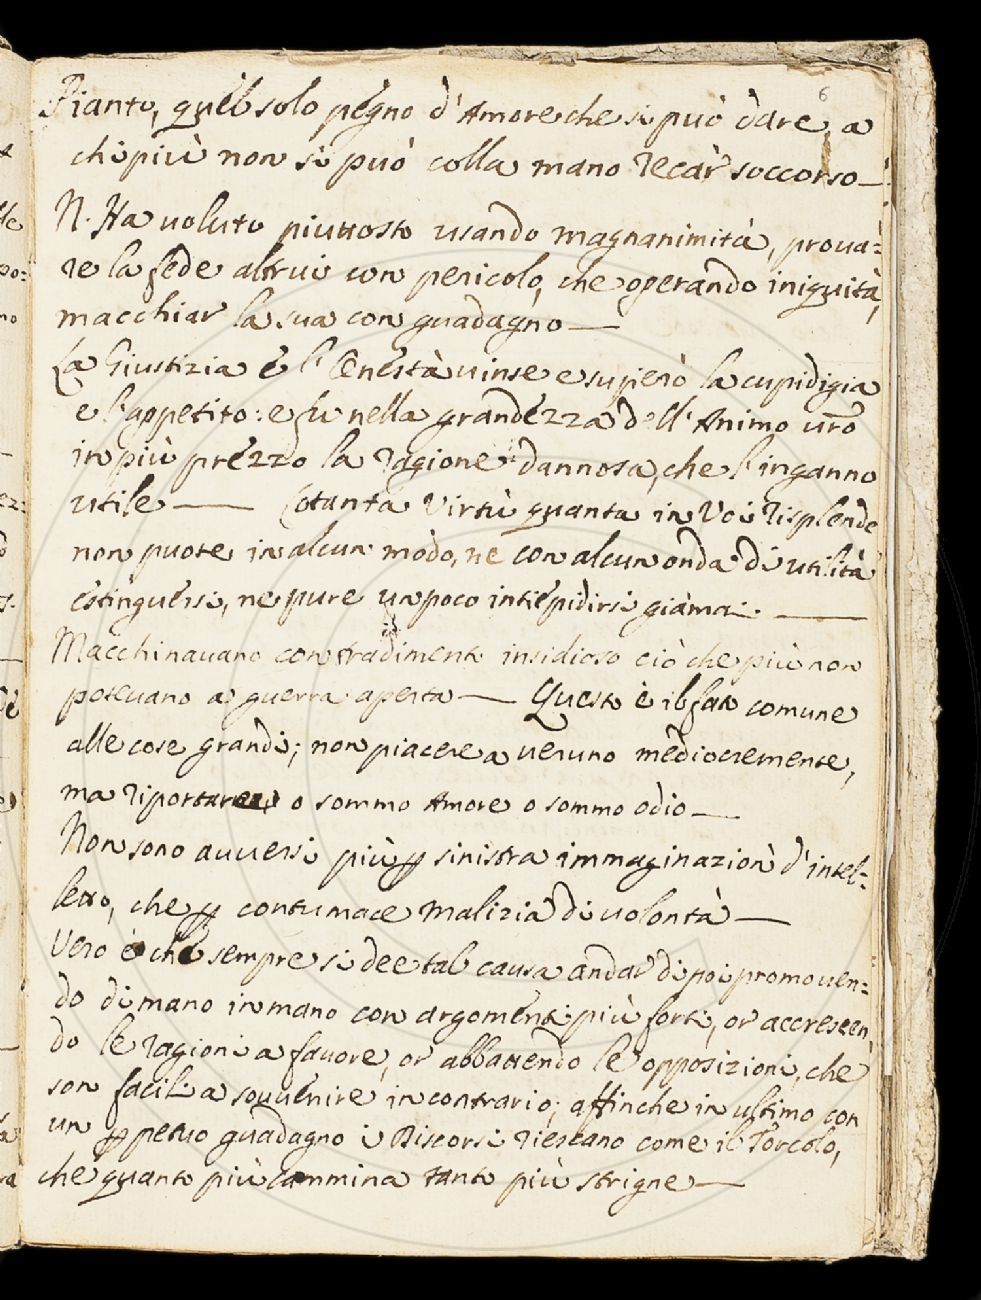 6
Pianto, quel solo pegno d'Amore che si può dare a
chi più non si può colla mano recàr soccorso—
N. Ha voluto piuttosto usando magnanimità, prova=
re la fede altrui con pericolo, che operando iniquità,
macchiar la sua con guadagno—
La Giustizia e l'Onestà vinse e superò la cupidigia
e l'appetito: e fu nella grandezza dell'Animo vrõ
in più prezzo la ragione dannosa, che l'inganno
utile— Cotanta Virtù quanta in Voi risplende
non puote in alcun modo, ne con alcun onda di utilità
estinguersi, ne pure un poco intiepidirsi giàmai.—
Macchinavano con tradimento insidioso ciò che più non
potevano a guerra aperta— Questo è il fato comune
alle cose grandi; non piacere a veruno mediocremente,
ma riportare o sommo Amore o sommo odio—
Non sono avversi più ꝑ sinistra immaginazion d'intel=
letto, che ꝑ contumace malizia di volontà—
Vero è che sempre si dee tal causa andar di poi promoven=
do di mano in mano con argomenti più forti, or accrescen
do le ragioni a favore, or abbattendo le opposizioni, che
son facili a sovvenire in contrario; affinche in ultimo con
un ꝑpetuo guadagno i Discorsi riescano come il Torcolo,
che quanto più cammina tanto più strigne—